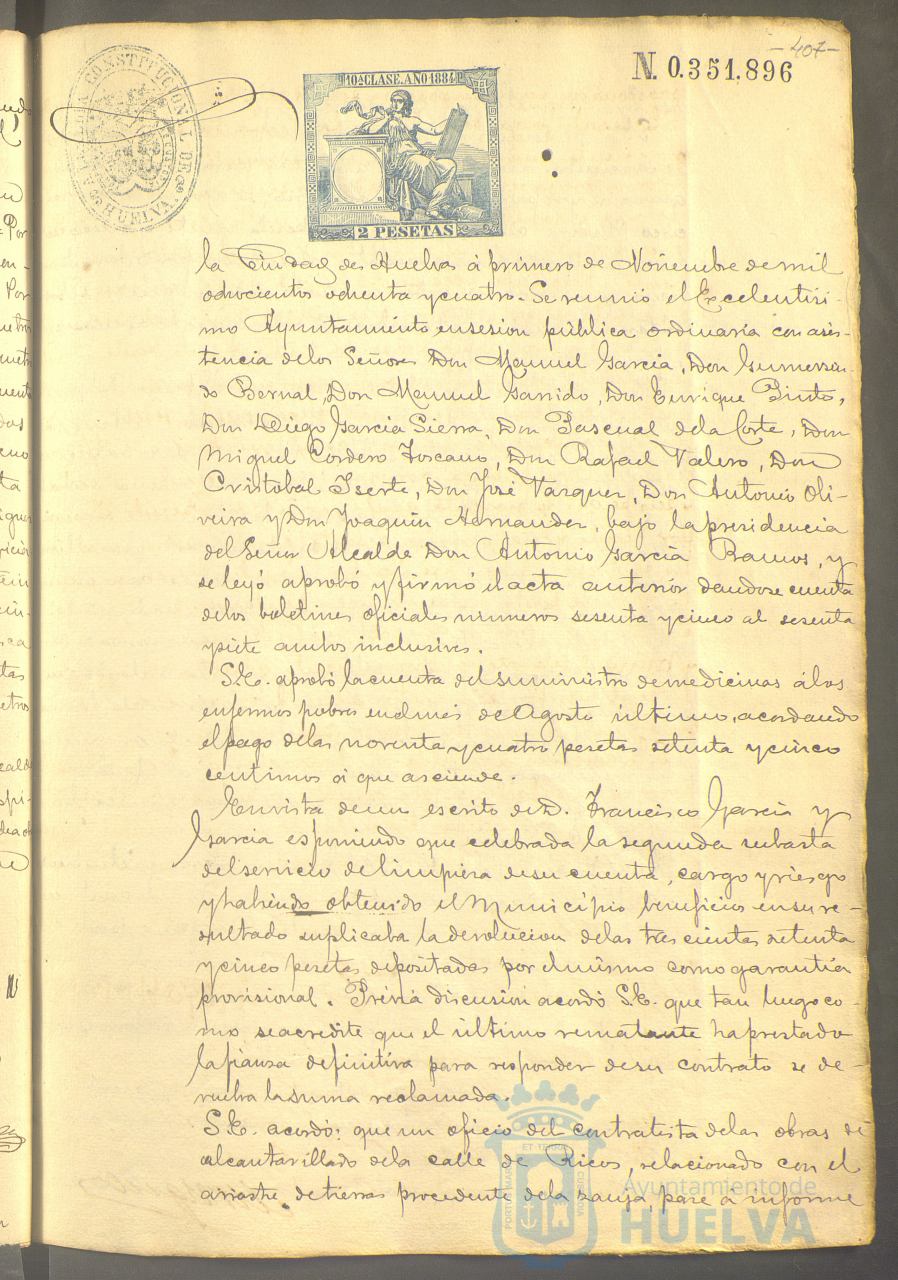 - 407 -
N. 0.351.896
ALCALDIA CONSTITUCIONAL DE HUELVA
10ª CLASE. AÑO 1884
2 PESETAS
la Ciudad de Huelva á primero de Noviembre de mil
ochocientos ochenta y cuatro. Se reunió el Excelentisi-
mo Ayuntamiento en sesion pública ordinaria con asis-
tencia de los Señores Don Manuel Garcia, Don Gumersin-
do Bernal, Don Manuel Garrido, Don Enrique Pinto,
Don Diego Garcia Sierra, Don Pascual de la Corte, Don
Miguel Cordero Toscano, Don Rafael Valero, Don
Cristobal Iserte, Don José Vazquez, Don Antonio Oli-
veira y Don Joaquin Hernandez, bajo la presidencia
del Señor Alcalde Don Antonio Garcia Ramos, y
se leyó aprobó y firmó el acta anterior dandose cuenta
de los boletines oficiales números sesenta y cinco al sesenta
y siete ambos inclusives.
S.E. aprobó la cuenta del suministro de medicinas á los
enfermos pobres en el mes de Agosto último, acordando
el pago de las noventa y cuatro pesetas setenta y cinco
centimos á que asciende.
En vista de un escrito de D. Francisco Garcia y
Garcia esponiendo que celebrada la segunda subasta
del servicio de limpieza de su cuenta, cargo y riesgo
y habiendo obtenido el Municipio beneficios en su re-
sultado suplicaba la devolucion de las trescientas setenta
y cinco pesetas depositadas por el mismo como garantia
provisional. Prévia discusion acordó S.E. que tan luego co-
mo se acredite que el último rematante ha prestado
la fianza definitiva para responder de su contrato se de-
vuelva la suma reclamada.
S.E. acordó: que un oficio del contratista de las obras de
alcantarillado de la calle de Ricos, relacionado con el
arrastre de tierras procedente de la zanja, pase a informe
Ayuntamiento de
HUELVA